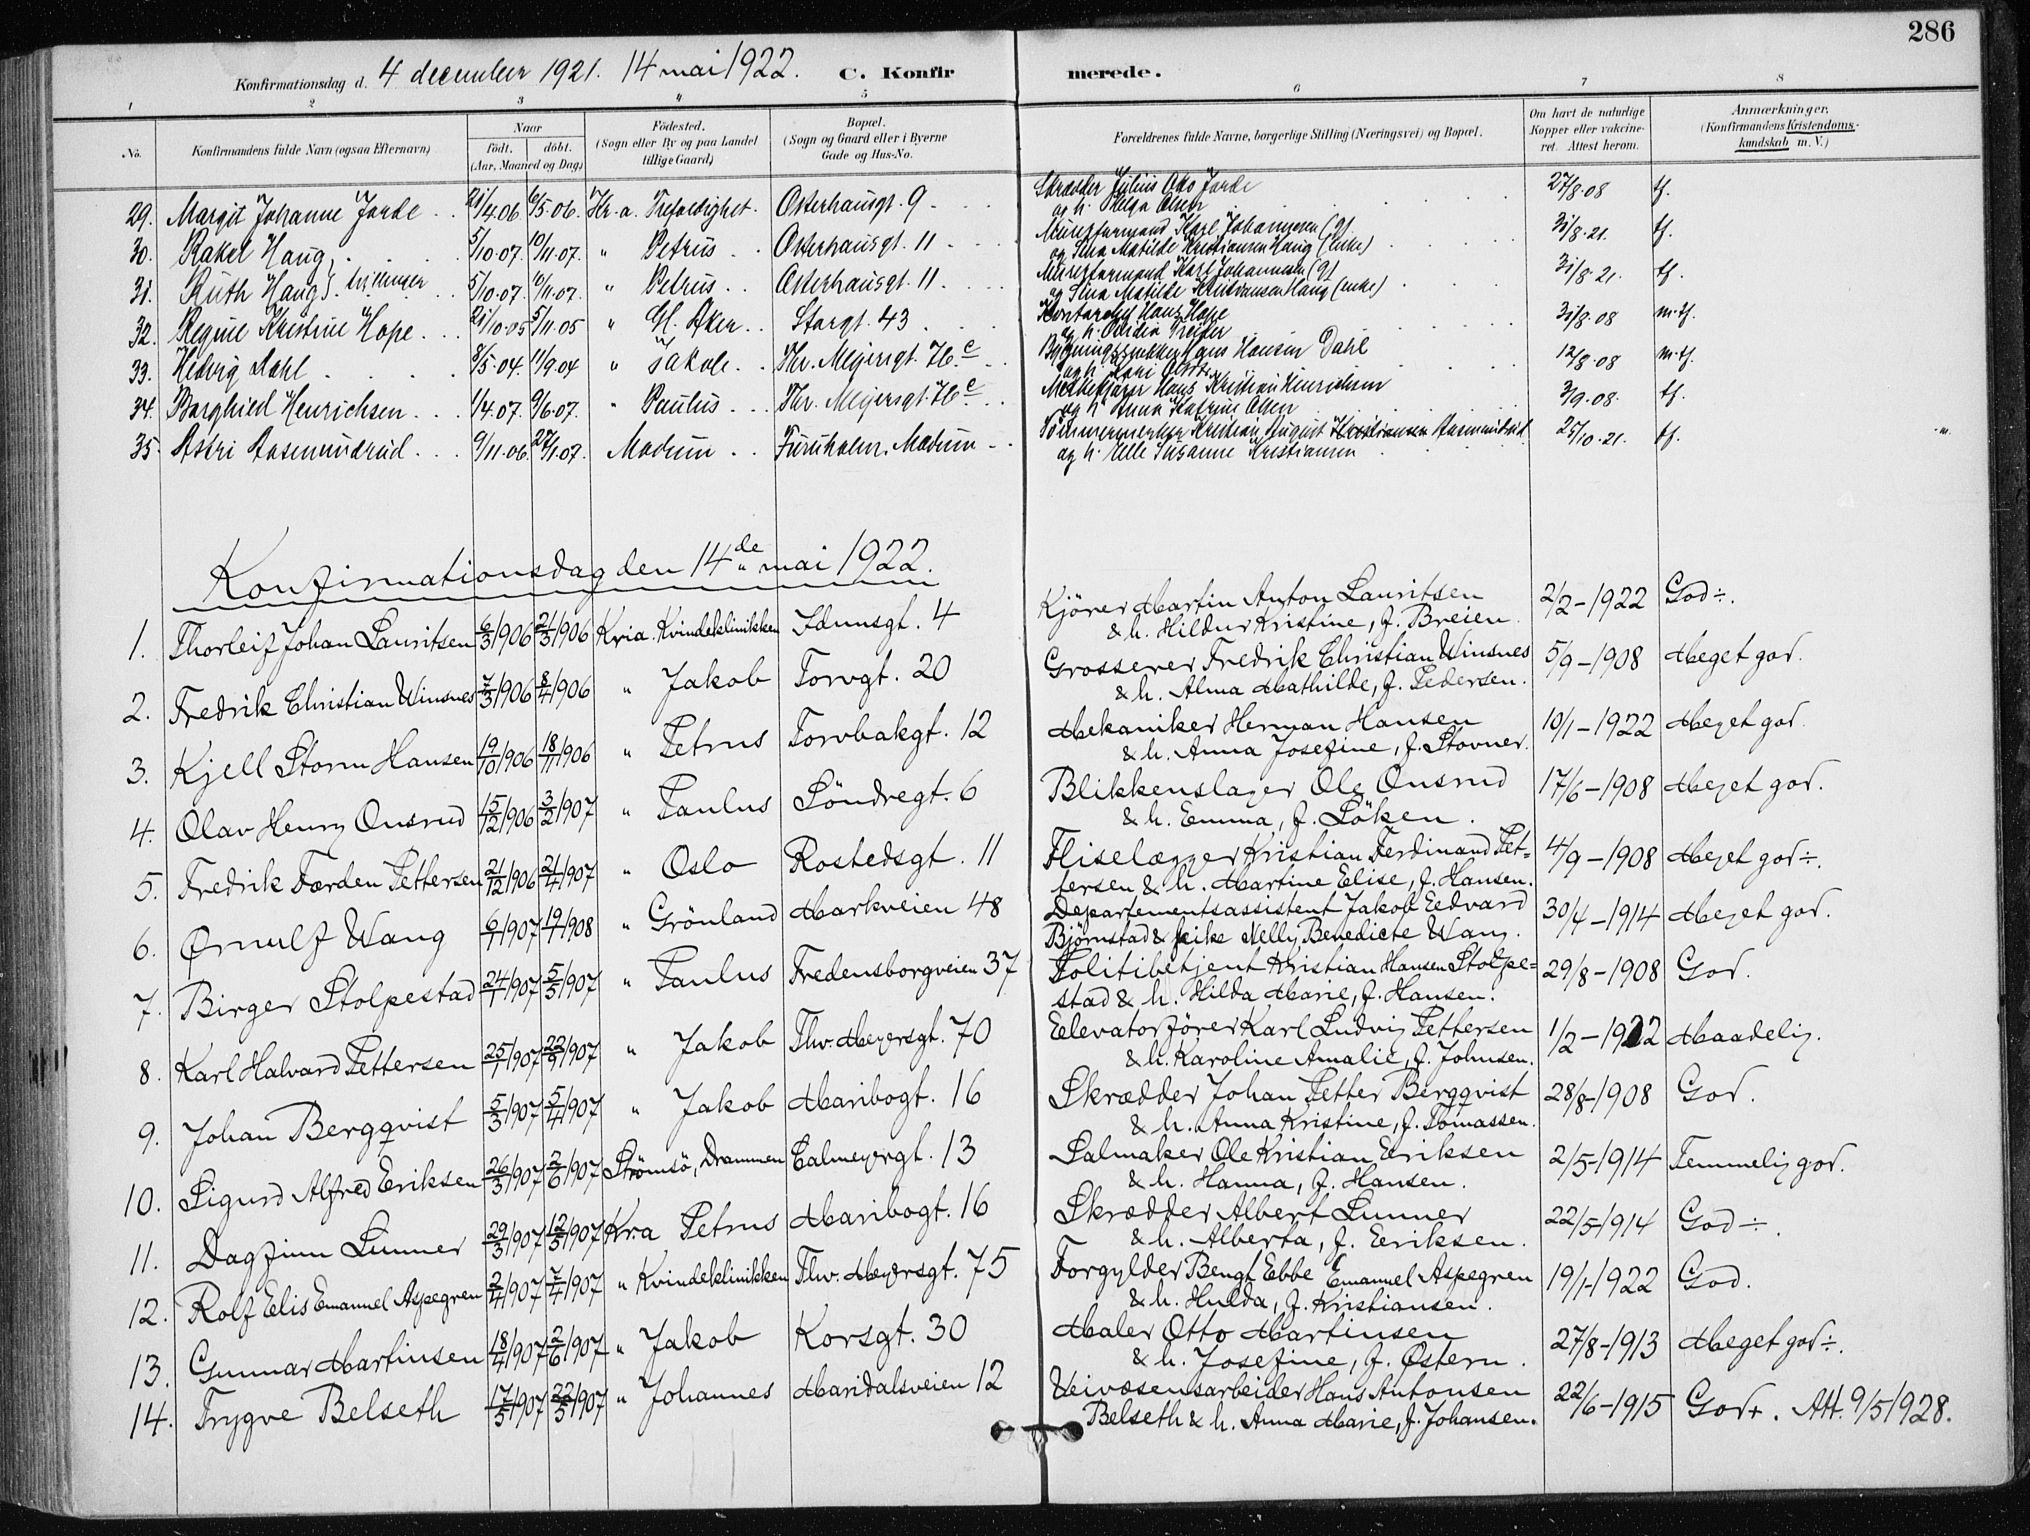 286
Konfirmationsdag d. 4 december 1921. 14 mai 1922. C. Konfirmerede.
1 2 3 4 5 6 7 8
No. Konfirmandens fulde Navn (ogsaa Efternavn) Naar født. døbt. (Aar, Maaned og Dag) Fødested. (Sogn eller By og paa Landet tillige Gaard) Bopæl. (Sogn og Gaard eller i Byerne Gade og Hus-No. Forældrenes fulde Navne, borgerlige Stilling (Næringsvei) og Bopæl. Om havt de naturlige Kopper eller vakcineret. Attest herom. Anmærkninger. (Konfirmandens Kristendomskundskab m. V.)
29. Margit Johanne Jorde 21/4.06 6/5.06. Kr.a. Trefoldighet. Osterhausgt. 9 Skrædder Julius Otto Jorde 27/8.08 tf.
og h. Helga Olsen
30. Rakel Haug 5/10.07. 10/11.07. " Petrus Osterhausgt. 11 Murerformand Karl Johannesen 31/8.21. tf.
og Sina Matilde Kristiansen Haug (enke)
31. Ruth Haug } tvillinger 5/10.07. 10/11.07. " Petrus Osterhausgt. 11 Murerformand Karl Johannesen 31/8.21. tf.
og Sina Matilde Kristiansen Haug (enke)
32. Regine Kristine Hope 21/10.05 5/11.05 " Gl. Aker Storgt. 43 Hans Hope 31/8.08 m.tf.
33. Hedvig Dahl 8/5.04. 11/9.04 " Jakob Thv. Meyersgt. 76 c Hans Hansen Dahl 12/8.08 m.tf.
34. Borghild Henrichsen 1/4.07. 9/6.07. " Paulus Thv. Meyersgt. 76 c Hans Kristian Henrichsen 3/9.08. tf.
og h. Anna Katrine Olsen
35. Astri Aasmundrud 9/11.06. 27/1.07. Modum Furuholm, Modum Kristian August Kristiansen Aasmundrud 25/10.21. tf.
og h. Elle Susanne Kristiansen
Konfirmationsdag den 14de mai 1922.
1. Thorleif Johan Lauritsen 6/3 1906 21/3 1906 Kria. Kvindeklinikken Idunsgt. 4 Kjörer Martin Anton Lauritsen 2/2-1922 God ÷.
& h. Hildur Kristine, f. Breien.
2. Fredrik Christian Winsnes 7/3 1906 8/4 1906 " Jakob Torvgt. 20 Grosserer Fredrik Christian Winsnes 5/9-1908 Meget god.
& h. Alma Mathilde, f. Pedersen.
3. Kjell Storm Hansen 19/10 1906 18/11 1906 " Petrus Torvbakgt. 12 Mekaniker Herman Hansen 10/1-1922 Meget god.
& h. Anna Josefine, f. Stovner.
4. Olav Henry Onsrud 15/12 1906 3/2 1907 " Paulus Söndregt. 6 Blikkenslager Ole Onsrud 17/6-1908 Meget god.
& h. Emma, f. Löken.
5. Fredrik Færden Pettersen 21/12 1906 21/4 1907 " Oslo Rostedsgt. 11 Fliselægger Kristian Ferdinand Pet- 4/9-1908 Meget god ÷.
tersen & h. Martine Elise, f. Hansen.
6. Ørnulf Wang 6/1 1907 19/1 1908 " Grönland Markveien 48 Departementsassistent Jakob Eedvard 30/4-1914 Meget god.
Bjørnstad & Nelly Benedicte Wang.
7. Birger Stolpestad 24/1 1907 5/5 1907 " Paulus Fredensborgveien 37 Politibetjent Kristian Hansen Stolpe- 29/8-1908 God.
stad & h. Hilda Marie, f. Hansen.
8. Karl Halvard Pettersen 25/1 1907 22/9 1907 " Jakob Thv. Meyersgt. 70 Eelevatorförer Karl Ludvig Pettersen 1/2-1922 Maadelig.
& h. Karoline Amalie, f. Johnsen.
9. Johan Bergqvist 5/3 1907 5/4 1907 " Jakob Maribogt. 16 Skrædder Johan Petter Bergqvist 28/8-1908 God.
& h. Anna Kristine, f. Tomassen.
10. Sigurd Alfred Eriksen 26/3 1907 2/6 1907 Strömsö, Drammen Calmeyergt. 13 Salmaker Ole Kristian Eeriksen 2/5-1914 Temmelig god.
& h. Hanna, f. Hansen.
11. Dagfinn Sunner 29/3 1907 12/5 1907 Kr.a Petrus Maribogt. 16 Skrædder Albert Sunner 22/5-1914 God ÷.
& h. Alberta, f. Eeriksen.
12. Rolf Eelis Emanuel Aspegren 2/4 1907 7/4 1907 " Kvindeklinikken Thv. Meyersgt. 75 Forgylder Bengt Ebbe Emanuel Aspegren 19/1-1922 God.
& h. Hulda, f. Kristiansen.
13. Gunnar Martinsen 18/4 1907 2/6 1907 " Jakob Korsgt. 30 Maler Otto Martinsen 27/8-1913 Meget god ÷.
& h. Josefine, f. Østern.
14. Trygve Belseth 17/5 1907 22/5 1907 " Johannes Maridalsveien 12 Veivæsensarbeider Hans Antonsen 22/6-1915 God +. Att. 9/5 1928.
Belseth & h. Anna Marie, f. Johansen.